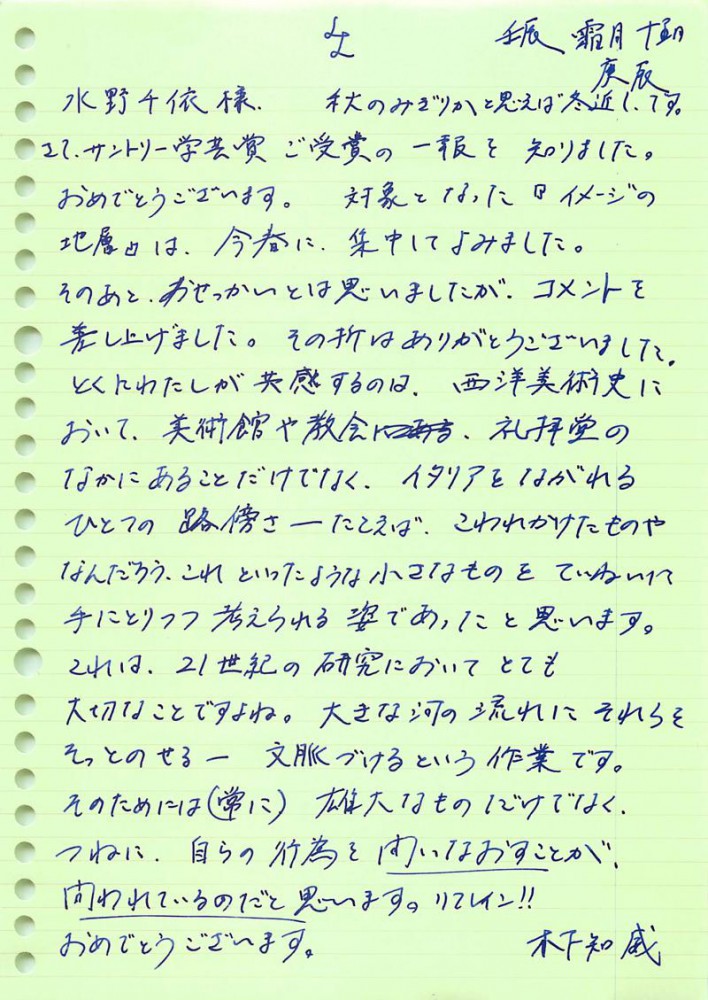 壬辰 霜月 十五日
庚辰
水野千依様. 秋のみぎりかと思えば冬近し、です。
さて、サントリー学芸賞 ご受賞の 一報を 知りました。
おめでとうございます。 対象となった『イメージの
地層』は、今春に、集中してよみました。
そのあと、おせっかいとは思いましたが、コメントを
差し上げました。その折はありがとうございました。
とくにわたしが共感するのは、西洋美術史に
おいて、美術館や教会、礼拝堂の
なかにあることだけでなく、イタリアをながれる
ひとつの 路傍さ—たとえば、こわれかけたものや
なんだろう、これ といったような小さなものを ていねいに
手にとりつつ 考えられる 姿であったと思います。
これは、21世紀の研究においてとても
大切なことですよね。大きな河の流れに それらを
そっとのせる— 文脈づけるという作業です。
そのためには(常に) 雄大なものだけでなく、
つねに、自らの行為を 問いなおすことが、
問われているのだと思います。リフレイン!!
おめでとうございます。 木下知威